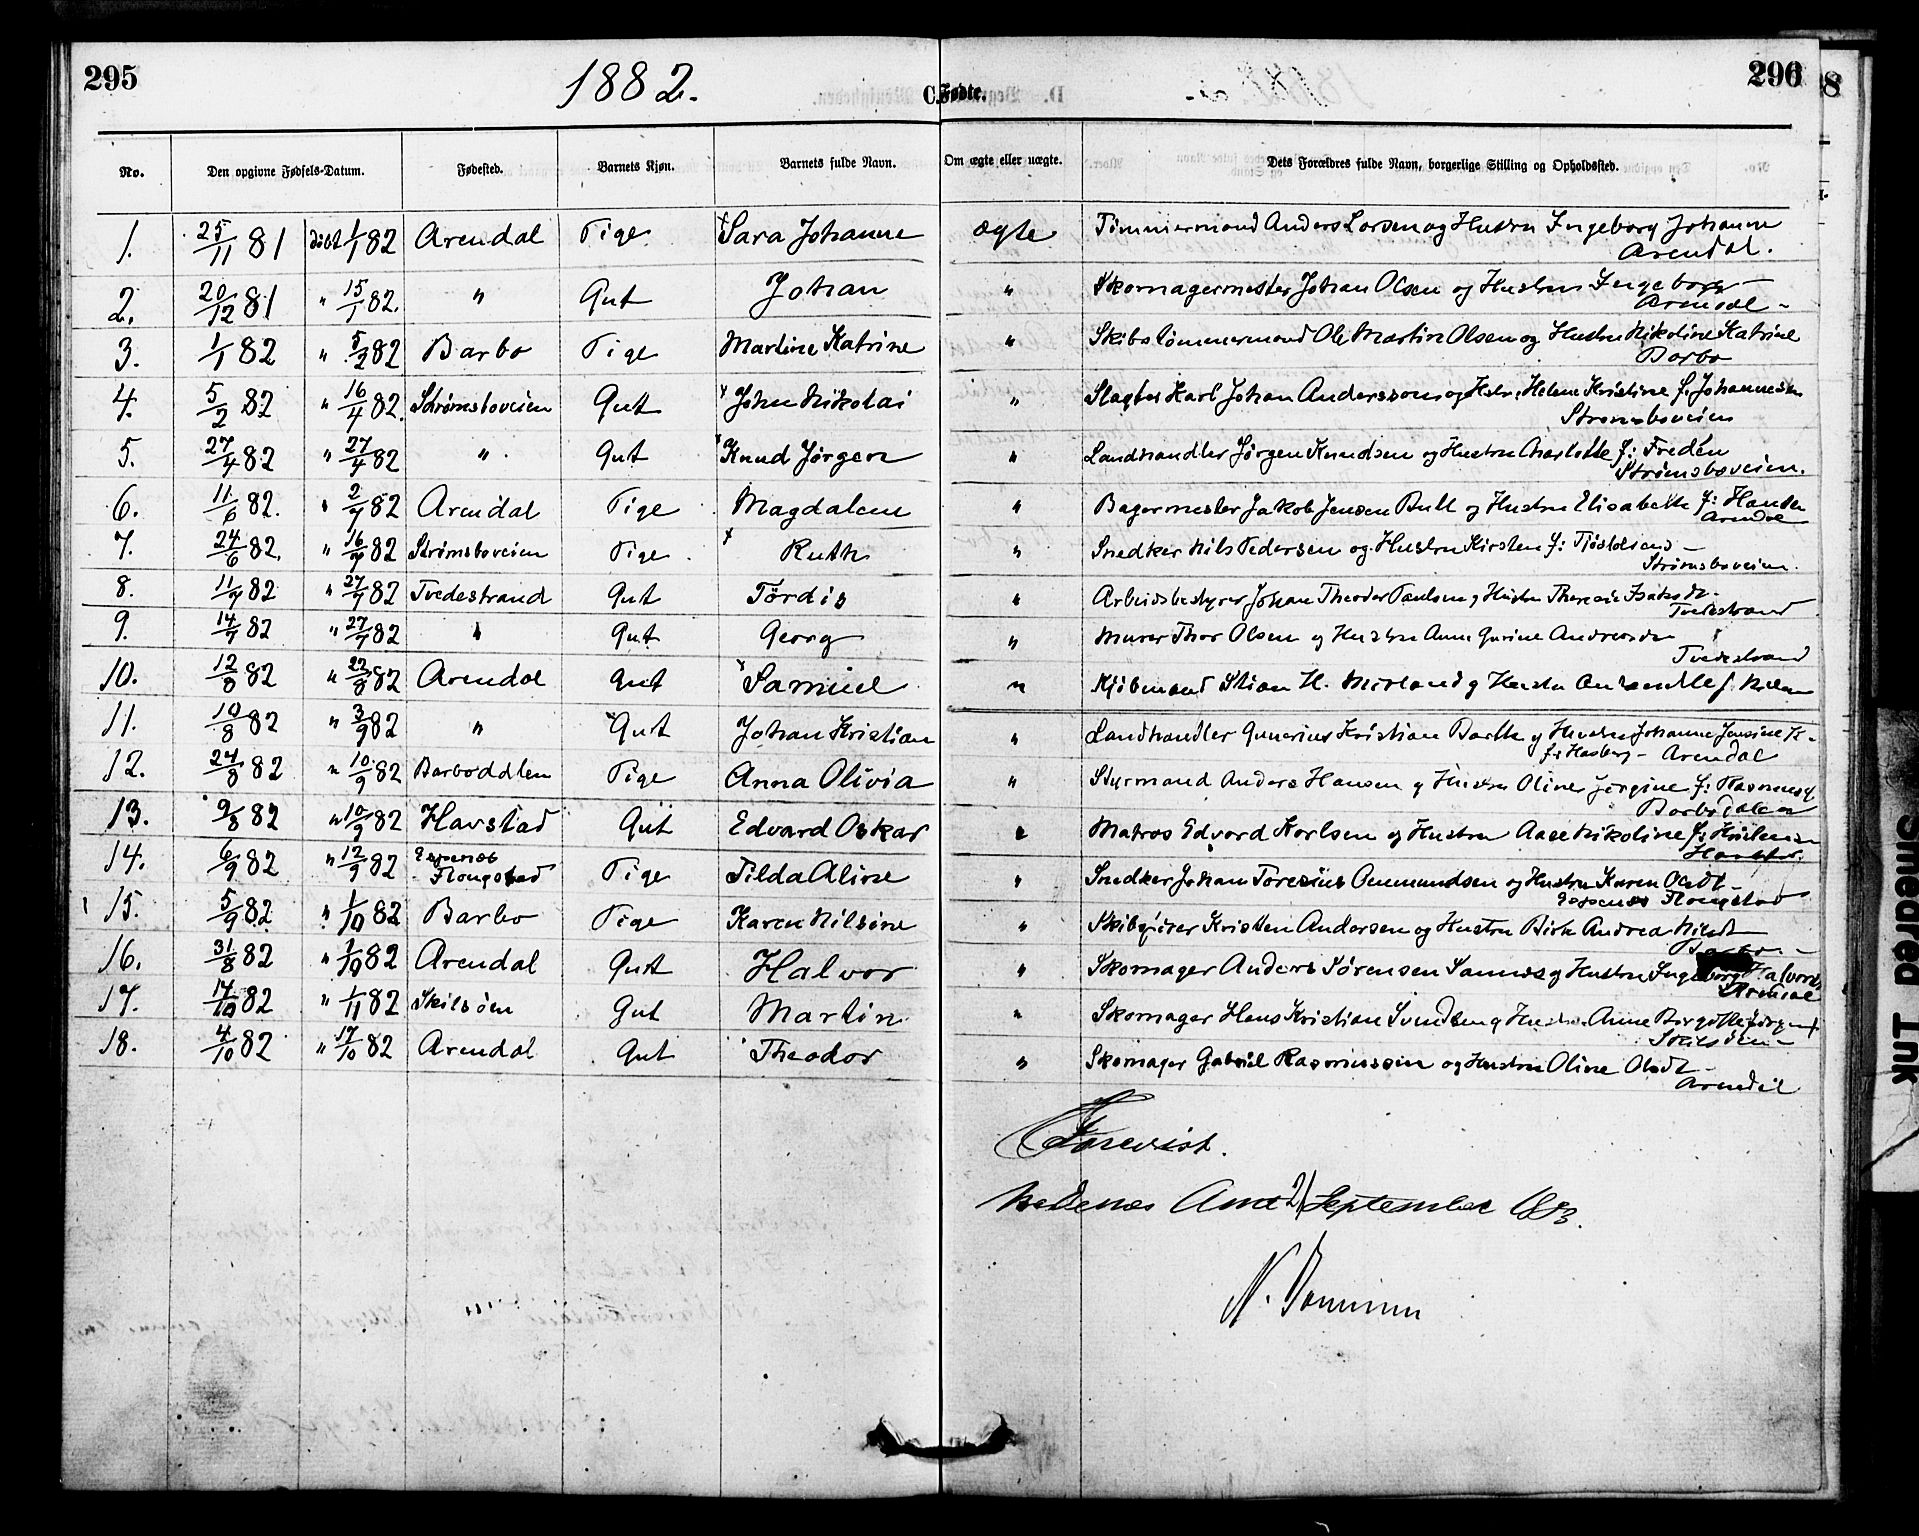 295
1882.
C. Fødte.
296
No. Den opgivne Fødsels-Datum. Fødested. Barnets Kjøn. Barnets fulde Navn. Om ægte eller uægte. Dets Forældres fulde Navn, borgerlige Stilling og Opholdssted.
1. 25/11 81 døbt 1/1 82 Arendal Pige Sara Johanne ægte Tømmermand Anders Larsen og Hustru Ingeborg Johanne
Arendal.
2. 20/12 81 " 15/1 82. " Gut Johan " Skomagermester Johan Olsen og Hustru Ingeborg
Arendal
3. 1/1 82 " 5/2 82 Barbo Pige Martine Katrine " Skibstømmermand Ole Martin Olsen og Hustru Nikoline Katrine
Barbo
4. 5/2 82 " 16/4 82. Strømsboveien Gut John Nikolai " Slagter Karl Johan Anderssom og Hstr. Helene Kristine f. Johannesen
Strømsboveien
5. 27/4 82 " 27/4 82 " Gut Knud Jørgen " Landhandler Jørgen Knudsen og Hustru Charlotte f: Freden
Strømsboveien.
6. 11/6 82. " 2/7 82 Arendal Pige Magdalene " Bagermester Jakob Jensen Bull og Hustru Elisabeth f: Hansen
Arendal
7. 24/6 82. " 16/7 82 Strømsboveien Pige Ruth " Snedker Nils Pedersen og Hustru Kirsten f:
Strømsboveien.
8. 11/7 82 " 27/7 82 Tvedestrand Gut Tørdis " Arbeidsbestyrer Johan Theodor Paulsen og Hustru Theresie Isaksdt.
Tvedestrand
9. 14/7 82 " 27/7 82 " Gut Georg " Murer Thor Olsen og Hustru Anne Gurine Andreasdr
Tvedestrand
10. 12/8 82 " 22/8 82 Arendal Gut Samuel " Kjøbmand Stian H. og Hustru f. Nielsen
11. 10/8 82 " 3/9 82 " Gut Johan Kristian " Landhandler Gunerius Kristian Barth og Hustru Johanne Jensine K.
f: Hasberg - Arendal
12. 24/8 82 " 10/9 82 Barbodalen Pige Anna Olivia " Styrmand Anders Hansen og Hustru Oline Jørgine f: Rasmussen
Barbodalen
13. 9/8 82 " 10/9 82 Havstad Gut Edvard Oskar " Matros Edvard Karlsen og Hustru Aase Nikoline f:
Havstad
14. 6/9 82 " 12/9 82 Espenes
Flangstad Pige Tilda Aline " Snedker Johan Toresius Ommundsen og Hustru Karen Olsdt
Espenes Flangstad
15. 5/9 82 " 1/10 82 Barbo Pige Karen Nilsine " Skibsfører Kristen Andersen og Hustru Birte Andrea Nilsdt
Barbo
16. 31/8 82 " 7/10 82 Arendal Gut Halvor " Skomager Anders Sørensen Sannes og Hustru Ingeborg Halvors
Arendal
17. 17/10 82 " 1/11 82 Skilsøen Gut Martin " Skomager Hans Kristian Svendsen og Hustru Anne Bergitte
Skilsøen
18. 4/10 82 " 17/10 82 Arendal Gut Theodor " Skomager Gabriel Rasmussen og Hustru Oline Olsdt
Arendal
Forevist.
Nedenes Amt 21 September 1883.
Smeared Ink